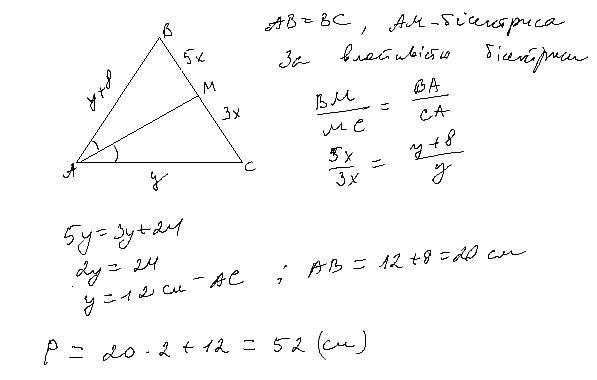 B
5x
y+8
M
3x
A
C
y
AB = BC, AM - бісектриса
За властивістю бісектриси
BM/MC = BA/CA
5x/3x = y+8/y
5y = 3y + 24
2y = 24
y = 12 см - AC ; AB = 12 + 8 = 20 см
P = 20 · 2 + 12 = 52 (см)